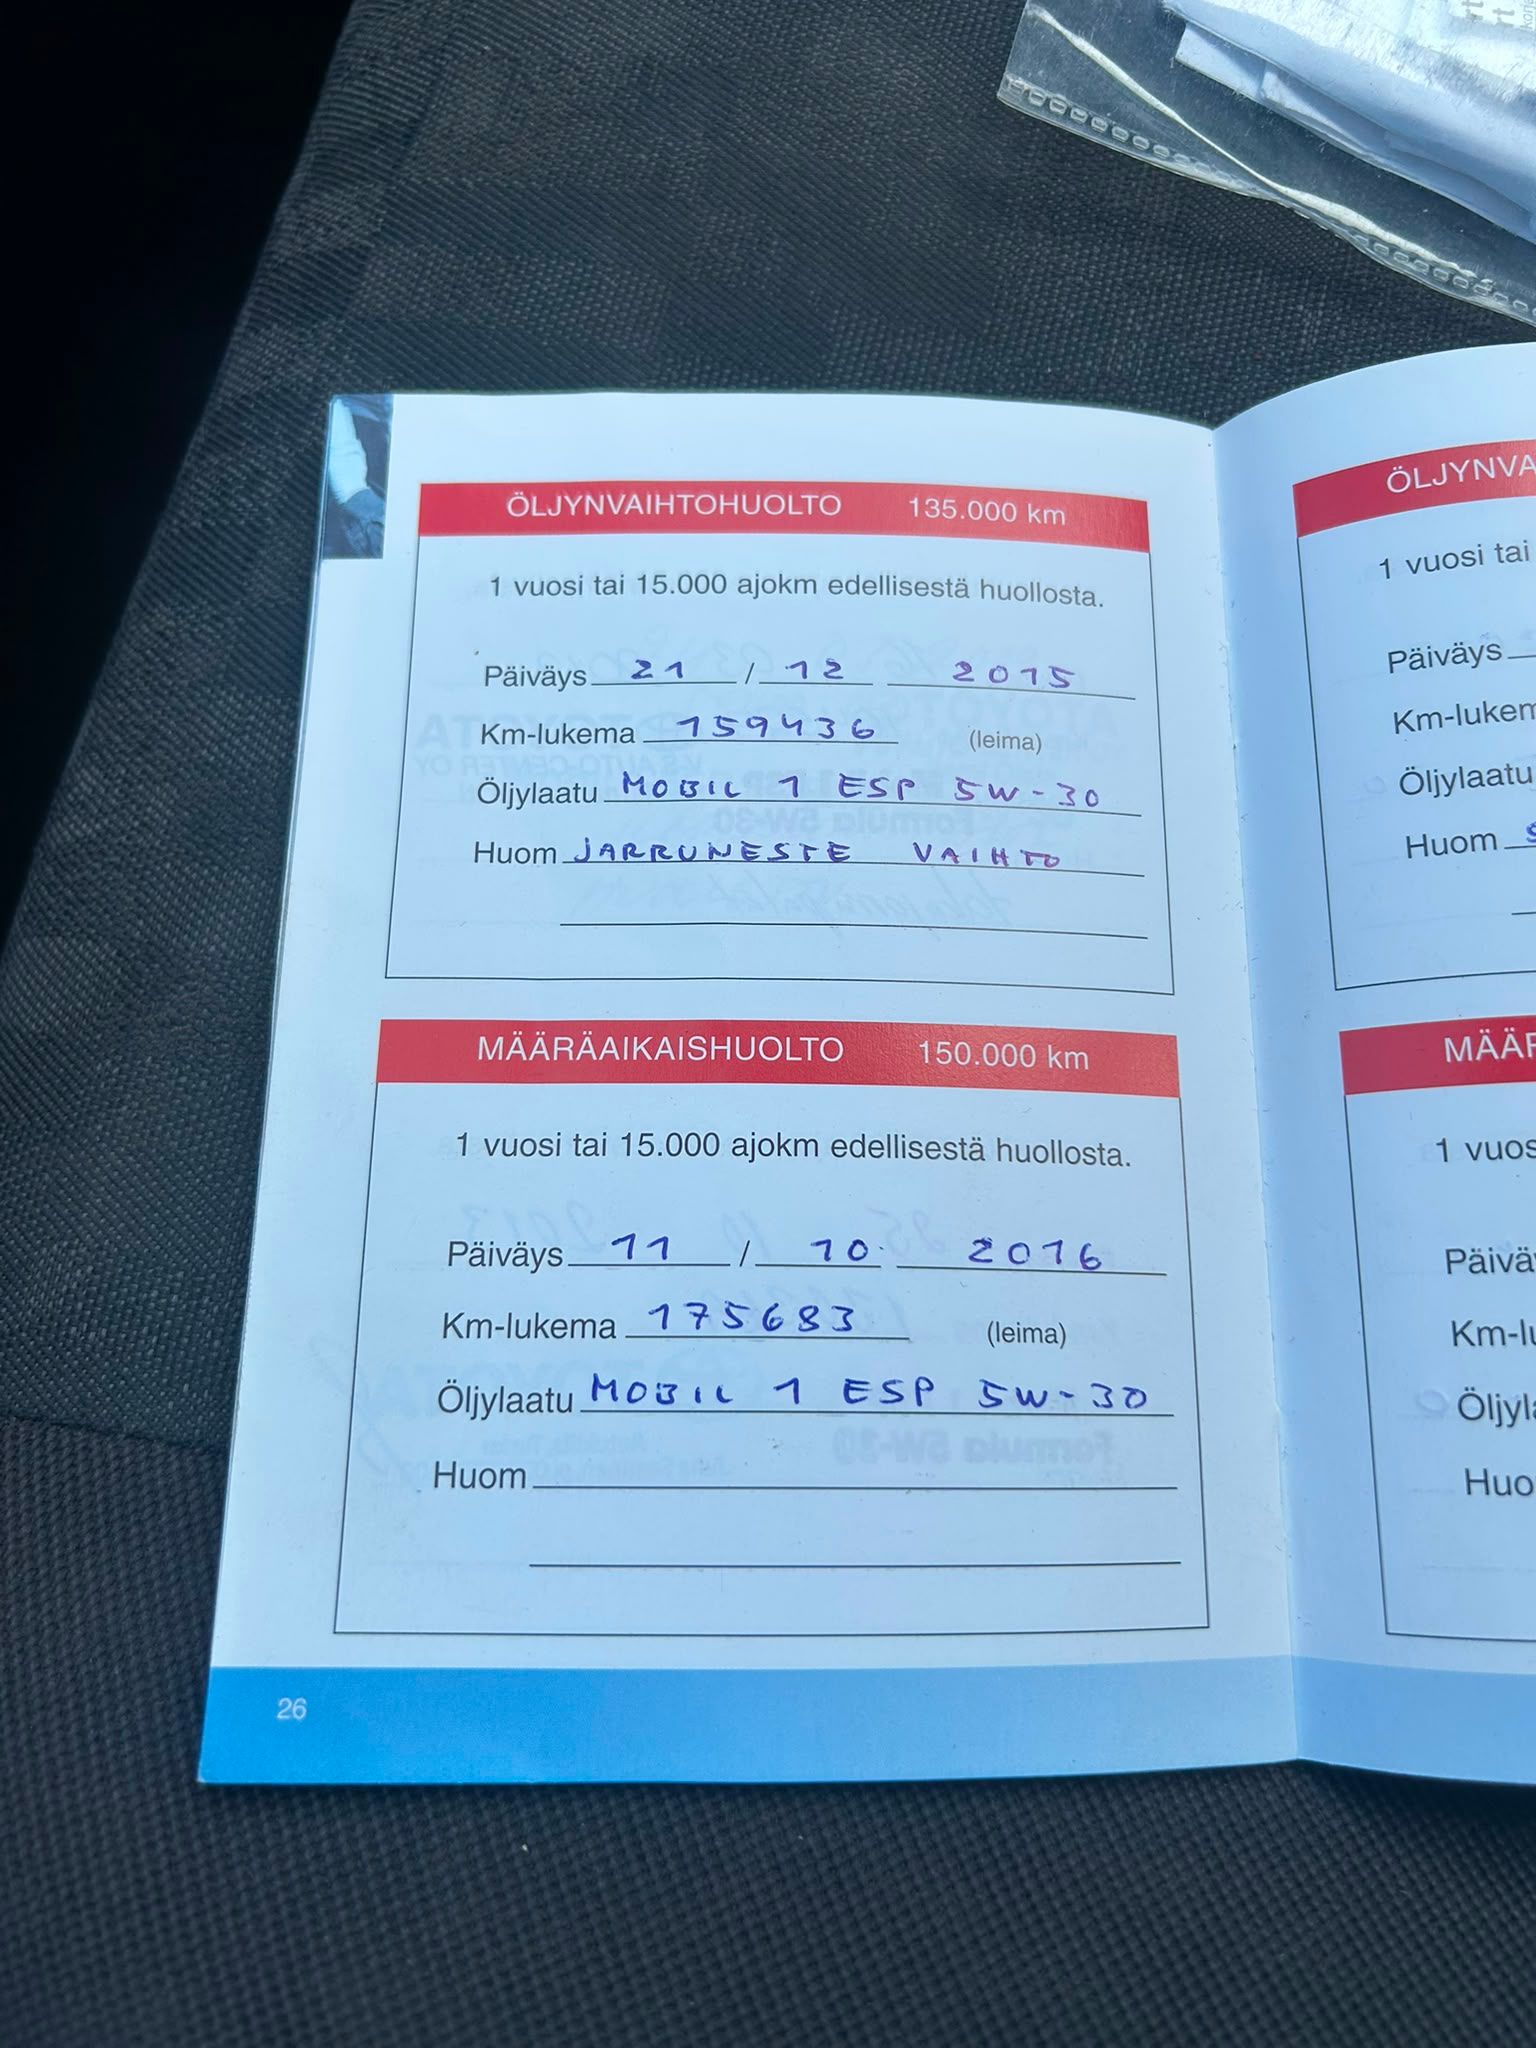 ÖLJYNVAIHTOHUOLTO 135.000 km
1 vuosi tai 15.000 ajokm edellisestä huollosta.
Päiväys 21 / 12 2015
Km-lukema 159436 (leima)
Öljylaatu MOBIL 1 ESP 5W-30
Huom JARRUNESTE VAIHTO
MÄÄRÄAIKAISHUOLTO 150.000 km
1 vuosi tai 15.000 ajokm edellisestä huollosta.
Päiväys 11 / 10. 2016
Km-lukema 175683 (leima)
Öljylaatu MOBIL 1 ESP 5W-30
Huom
26
1 vuosi tai
Päiväys
Öljylaatu
Huom